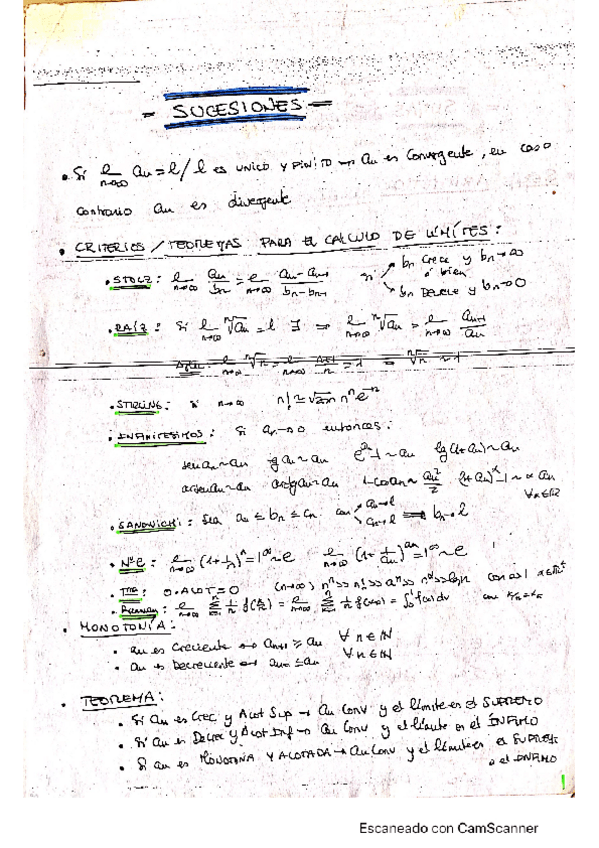 - SUCESIONES -
• Si l n→∞ an = l / l es UNICO y FINITO → an es Convergente, en caso
contrario an es divergente
• CRITERIOS / TEOREMAS PARA EL CALCULO DE LÍMITES:
• STOLZ: l n→∞ an/bn = l n→∞ an - an-1 / bn - bn-1 si bn Crece y bn→∞
ó bien
bn Decrece y bn→0
• RAÍZ: Si l n→∞ ⁿ√an = l ∃ ⇒ l n→∞ ⁿ√an = l n→∞ an+1/an
l n→∞ ⁿ√n = l n→∞ n+1/n = 1 ⇒ ⁿ√n ~ 1
• STIRLING: si n→∞ n! ≅ √2πn nⁿ e⁻ⁿ
• INFINITESIMOS: Si an→0 entonces:
sen an ~ an tg an ~ an e^an - 1 ~ an lg(1+an) ~ an
arcsen an ~ an arctg an ~ an 1-cos an ~ an²/2 (1+an)^α - 1 ~ α an
∀α∈ℝ
• SANDWICH: Sea an ≤ bn ≤ cn con an→l cn→l ⇒ bn→l
• Nº e: l n→∞ (1+1/n)ⁿ = 1^∞ ~ e l n→∞ (1+1/an)^an = 1^∞ ~ e
• 0·ACOT = 0 (n→∞) nⁿ >> n! >> aⁿ >> n^α >> lg n con a>1 α∈ℝ⁺
• Riemann: l n→∞ Σ 1/n f(k/n) = l n→∞ Σ 1/n f(xk) = ∫₀¹ f(x)dx con k/n = xk
• MONOTONÍA:
• an es Creciente ↔ an+1 ≥ an ∀ n ∈ ℕ
• an es Decreciente ↔ an+1 ≤ an ∀ n ∈ ℕ
• TEOREMA:
• Si an es Crec y Acot Sup → an Conv y el límite en el SUPREMO
• Si an es Decrec y Acot Inf → an Conv y el límite en el ÍNFIMO
• Si an es MONOTONA Y ACOTADA → an Conv y el límite en el SUPREMO
o el ÍNFIMO
1
Escaneado con CamScanner